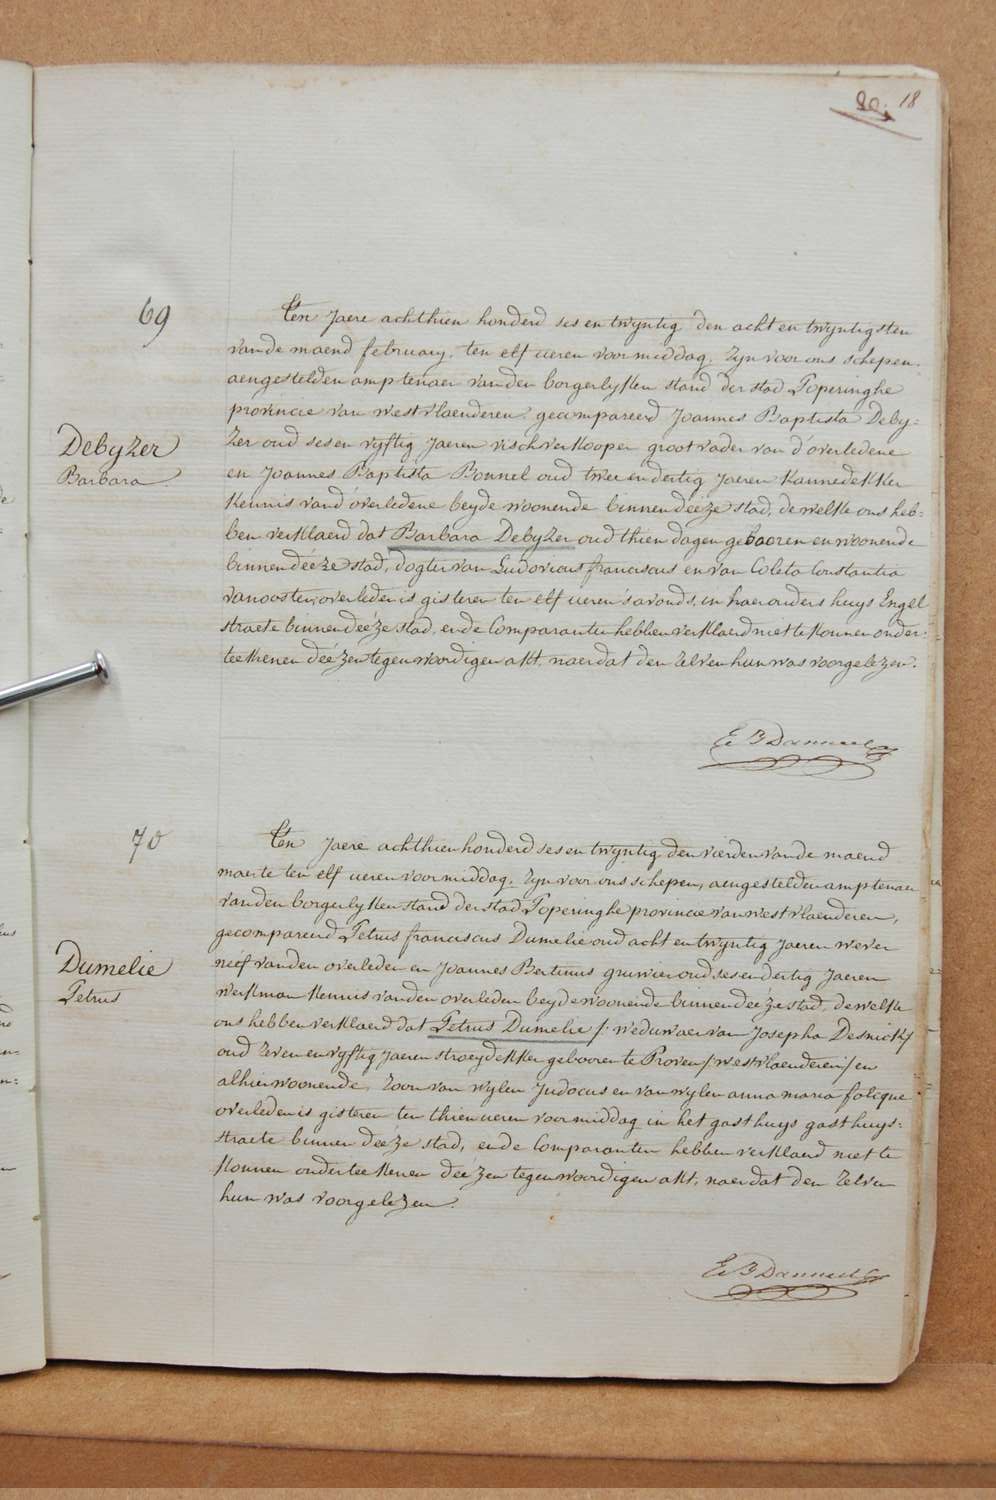 18
69
Debyzer
Barbara
Ten Jaere achthien honderd ses en twyntig den acht en twyntigsten
vande maend february, ten elf ueren voormiddag, Zyn voor ons schepen,
aengestelden amptenaer vanden borgerlyken stand der stad Poperinghe
provincie van westvlaenderen, gecompareerd Joannes Baptista Deby=
zer oud ses en vyftig Jaeren vischverkooper grootvader van d'overledene
en Joannes Baptista Bonnel oud twee en dertig Jaeren Kannedekker
Kennis van d'overledene beyde woonende binnen deéze stad, de welke ons heb=
ben verklaerd dat Barbara Debyzer oud thien dagen gebooren en woonende
binnen deéze stad, dogter van Ludovicus franciscus en van Coleta Constantia
vanoosten, overleden is gisteren ten elf ueren 's avonds, in haer ouders huys Engel
straete binnen deéze stad, ende Comparanten hebben verklaerd niet te konnen onder=
teekenen deézen tegenwoordigen akt, naer dat den zelven hun was voorgelezen.
E B Danneel
70
Dumelie
Petrus
Ten Jaere achthien honderd ses en twyntig den vierden vande maend
maerte ten elf ueren voormiddag, Zyn voor ons schepen, aengestelden amptenaer
vanden borgerlyken stand der stad Poperinghe provincie van westvlaenderen,
gecompareerd Petrus franciscus Dumelie oud acht en twyntig Jaeren wever
neef vanden overleden en Joannes Bertinus gruwier oud ses en dertig Jaeren
werkman Kennis vanden overleden beyde woonende binnen deéze stad, de welke
ons hebben verklaerd dat Petrus Dumelie /: weduwaer van Josepha Desnick/
oud zeven en vyftig Jaeren stroeydekker gebooren te Proven /westvlaenderen/ en
alhier woonende, Zoon van wylen Judocus en van wylen anna maria folcque
overleden is gisteren ten thien ueren voormiddag in het gasthuys gasthuys=
straete binnen deéze stad, ende Comparanten hebben verklaerd niet te
Konnen onderteekenen deézen tegenwoordigen akt, naer dat den zelven
hun was voorgelezen.
E B Danneel